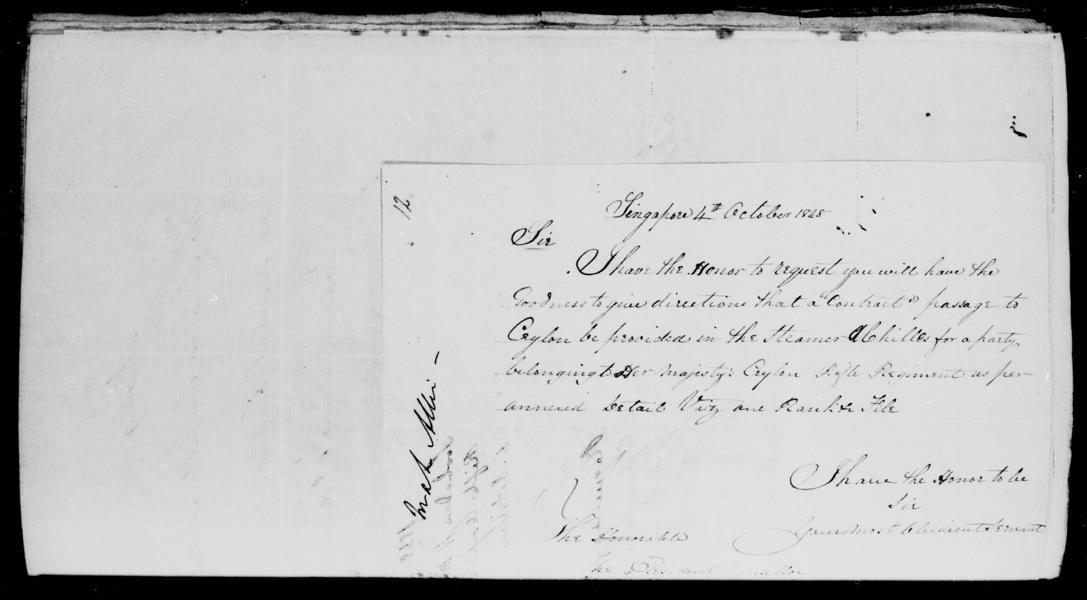 12
Singapore 4th October 1848
Sir
I have the Honor to request you will have the
Goodness to give directions that a Contractd passage to
Ceylon be provided in the Steamer Achilles for a party
belonging to Her Majesty's Ceylon Rifle Regiment as per
annexed Detail Viz one Rank & File
I have the Honor to be
Sir
Your most Obedient Servant
The Honorable
The Resident